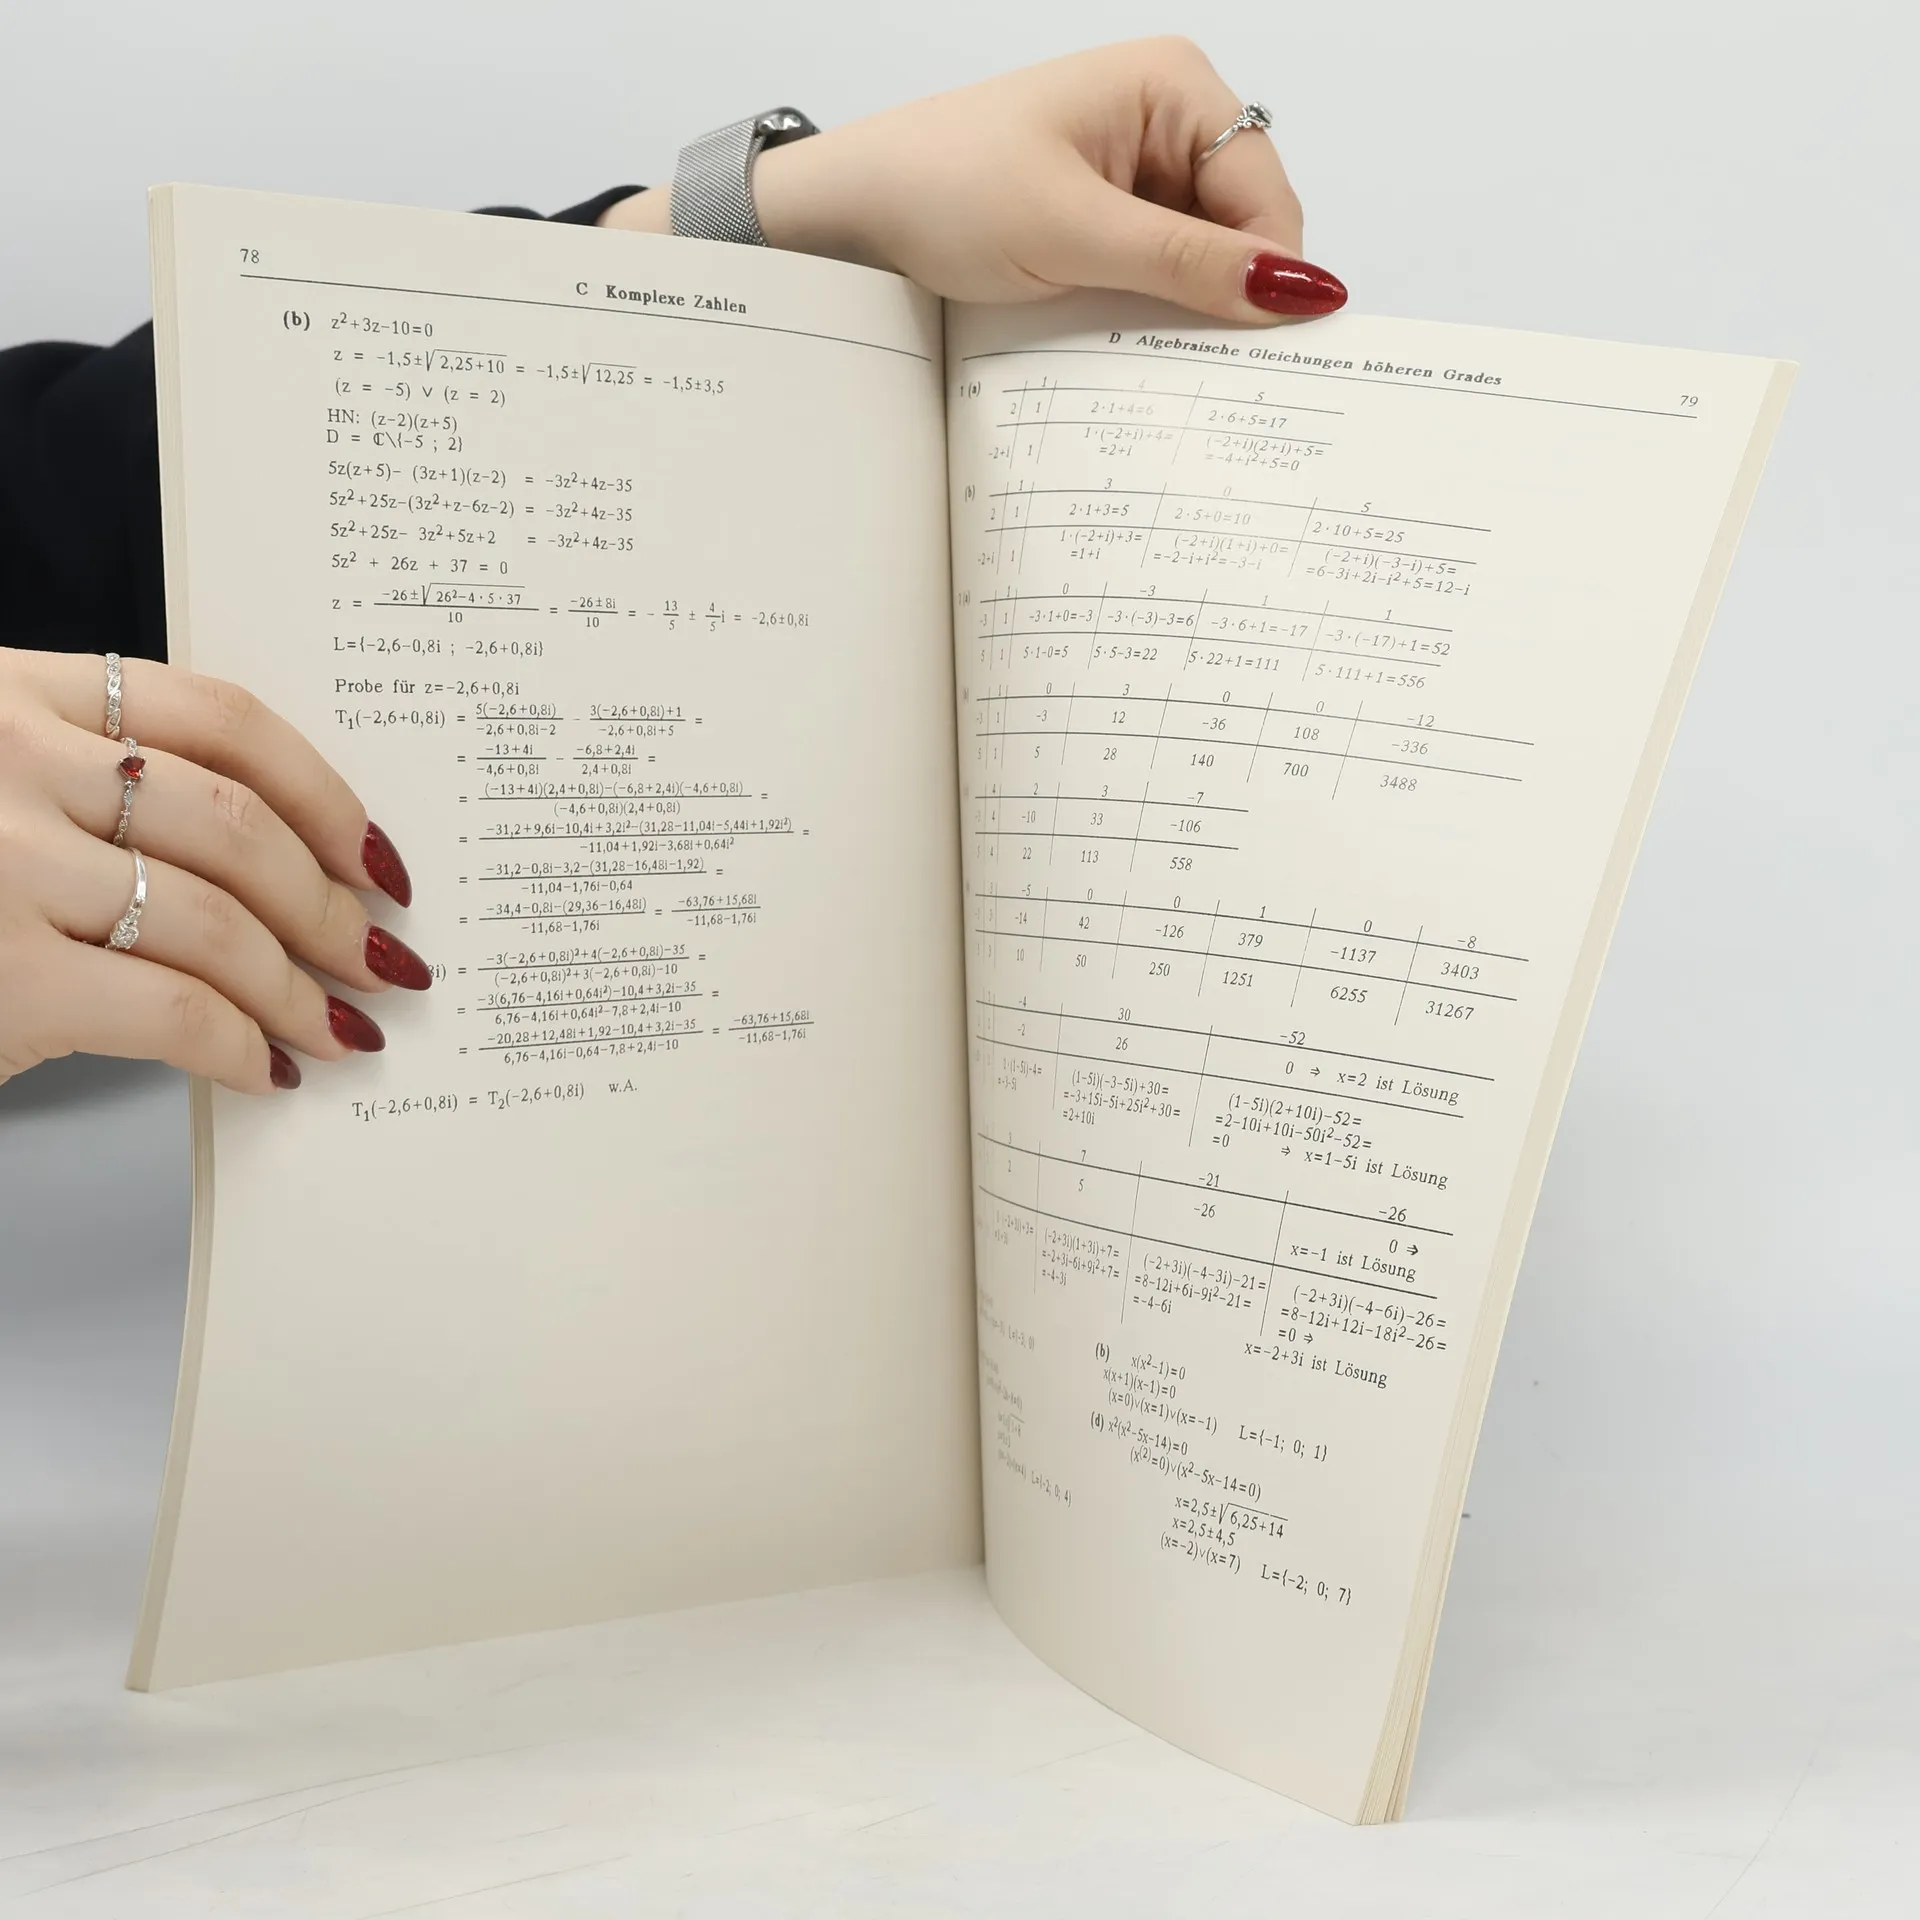 78
C Komplexe Zahlen
(b) z²+3z−10=0
z = −1,5±√2,25+10 = −1,5±√12,25 = −1,5±3,5
(z = −5) ∨ (z = 2)
HN: (z−2)(z+5)
D = ℂ\{−5 ; 2}
5z(z+5)− (3z+1)(z−2) = −3z²+4z−35
5z²+25z−(3z²+z−6z−2) = −3z²+4z−35
5z²+25z− 3z²+5z+2 = −3z²+4z−35
5z² + 26z + 37 = 0
z = (−26±√26²−4·5·37)/10 = (−26±8i)/10 = − 13/5 ± 4/5 i = −2,6±0,8i
L={−2,6−0,8i ; −2,6+0,8i}
Probe für z=−2,6+0,8i
T₁(−2,6+0,8i) = 5(−2,6+0,8i)/−2,6+0,8i−2 − 3(−2,6+0,8i)+1/−2,6+0,8i+5 =
= −13+4i/−4,6+0,8i − −6,8+2,4i/2,4+0,8i =
= (−13+4i)(2,4+0,8i)−(−6,8+2,4i)(−4,6+0,8i)/(−4,6+0,8i)(2,4+0,8i) =
= −31,2+9,6i−10,4i+3,2i²−(31,28−11,04i−5,44i+1,92i²)/−11,04+1,92i−3,68i+0,64i² =
= −31,2−0,8i−3,2−(31,28−16,48i−1,92)/−11,04−1,76i−0,64 =
= −34,4−0,8i−(29,36−16,48i)/−11,68−1,76i = −63,76+15,68i/−11,68−1,76i
8i) = −3(−2,6+0,8i)²+4(−2,6+0,8i)−35/(−2,6+0,8i)²+3(−2,6+0,8i)−10 =
= −3(6,76−4,16i+0,64i²)−10,4+3,2i−35/6,76−4,16i+0,64i²−7,8+2,4i−10 =
= −20,28+12,48i+1,92−10,4+3,2i−35/6,76−4,16i−0,64−7,8+2,4i−10 = −63,76+15,68i/−11,68−1,76i
T₁(−2,6+0,8i) = T₂(−2,6+0,8i) w.A.
D Algebraische Gleichungen höheren Grades
79
1 (a) 1 4 5
2 1 2·1+4=6 2·6+5=17
−2+i 1 1·(−2+i)+4= (−2+i)(2+i)+5=
=2+i =−4+i²+5=0
(b) 1 3 0 5
2 1 2·1+3=5 2·5+0=10 2·10+5=25
−2+i 1 1·(−2+i)+3= (−2+i)(1+i)+0= (−2+i)(−3−i)+5=
=1+i =−2−i+i²=−3−i =6−3i+2i−i²+5=12−i
(a) 1 0 −3 1 1
−3 1 −3·1+0=−3 −3·(−3)−3=6 −3·6+1=−17 −3·(−17)+1=52
5 1 5·1−0=5 5·5−3=22 5·22+1=111 5·111+1=556
1 0 3 0 0 −12
−3 1 −3 12 −36 108 −336
5 1 5 28 140 700 3488
4 2 3 −7
4 −10 33 −106
4 22 113 558
3 −5 0 0 1 0 −8
3 −14 42 −126 379 −1137 3403
3 10 50 250 1251 6255 31267
−4 30 −52
−2 26 0 ⇒ x=2 ist Lösung
(1−5i)(−3−5i)+30= (1−5i)(2+10i)−52=
=−3−5i =−3+15i−5i+25i²+30= =2−10i+10i−50i²−52=
=2+10i =0 ⇒ x=1−5i ist Lösung
3 7 −21 −26
2 5 −26 0 ⇒
x=−1 ist Lösung
(−2+3i)(1+3i)+7= (−2+3i)(−4−3i)−21= (−2+3i)(−4−6i)−26=
=−2+3i−6i+9i²+7= =8−12i+6i−9i²−21= =8−12i+12i−18i²−26=
=−4−3i =−4−6i =0 ⇒
x=−2+3i ist Lösung
(b) x(x²−1)=0
x(x+1)(x−1)=0
(x=0)∨(x=1)∨(x=−1) L={−1; 0; 1}
(d) x²(x²−5x−14)=0
(x⁽²⁾=0)∨(x²−5x−14=0)
x=2,5±√6,25+14
x=2,5±4,5
(x=−2)∨(x=7) L={−2; 0; 7}